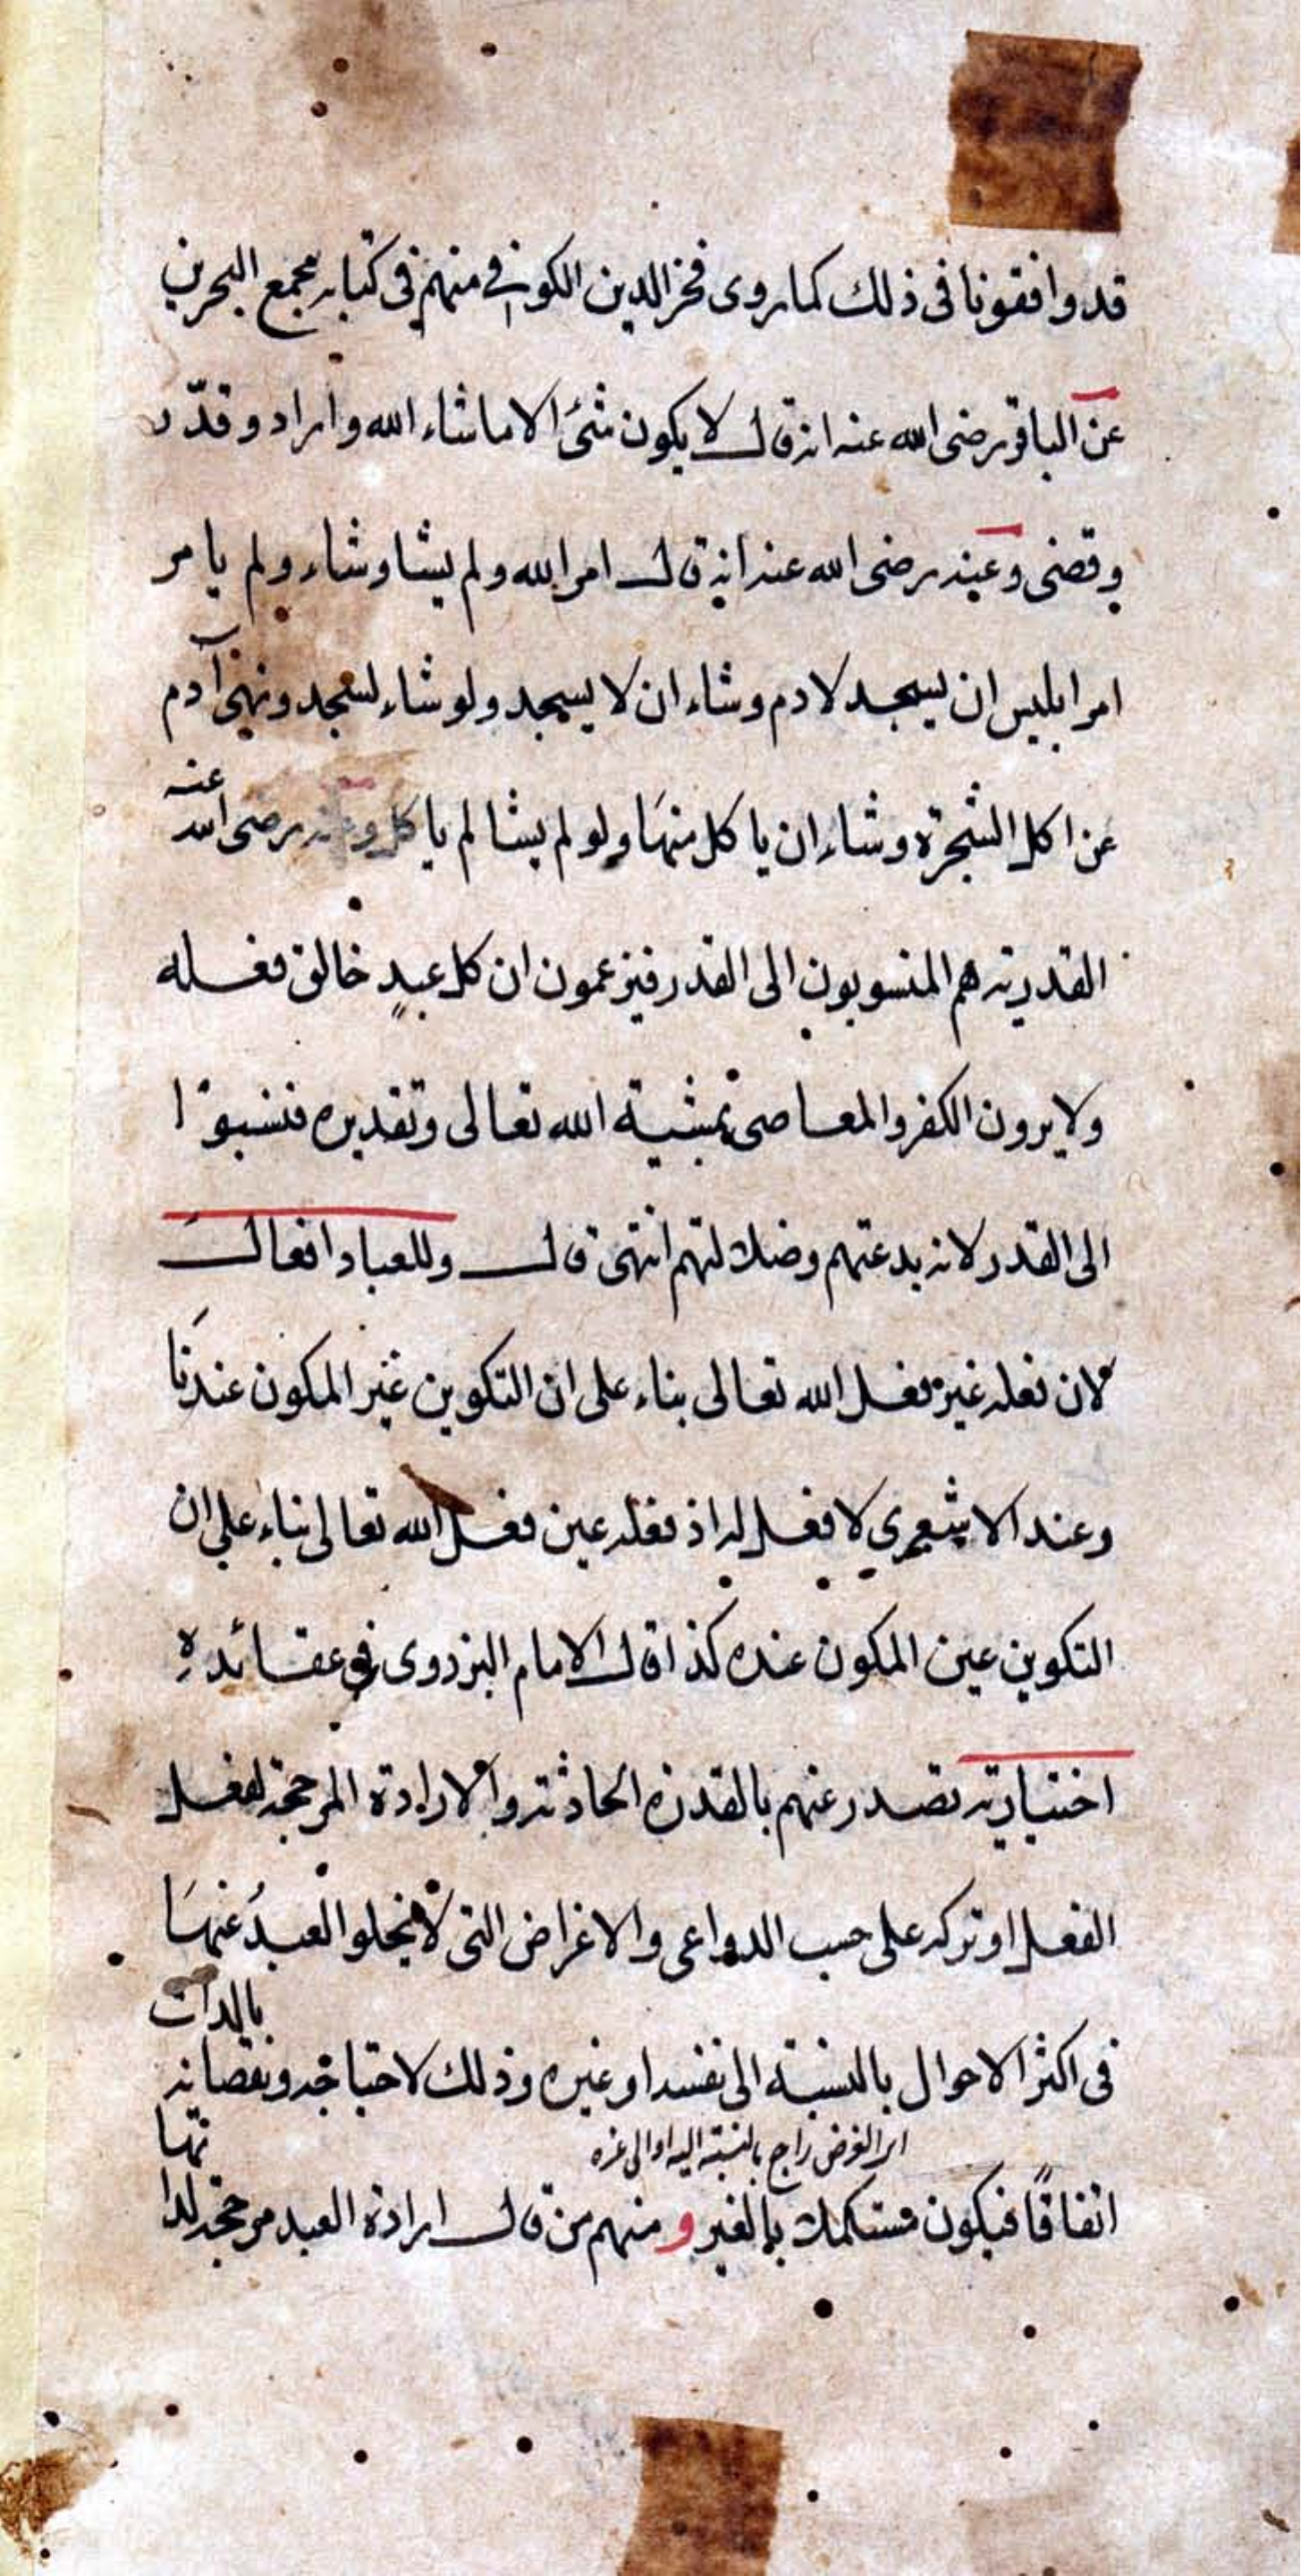 قد وافقونا فى ذلك كما روى فخر الدين الكوفى منهم فى كتابه مجمع البحرين
عن الباقر رضى الله عنه انه قال لا يكون شئ الا ما شاء الله واراد وقدّر
وقضى وعنه رضى الله عنه انه قال امر الله ولم يشا وشاء ولم يامر
امر ابليس ان يسجد لادم وشاء ان لا يسجد ولو شاء لسجد ونهى آدم
عن اكل الشجرة وشاء ان ياكل منها ولو لم يشا لم ياكل وعنه رضى الله عنه
القدريه هم المنسوبون الى القدر فيزعمون ان كل عبدٍ خالق فعله
ولا يرون الكفر والمعاصى بمشية الله تعالى وتقديره فنسبوا
الى القدر لانه بدعتهم وضلالتهم انتهى قال وللعباد افعال
لان فعله غير فعل الله تعالى بناء على ان التكوين غير المكون عندنا
وعند الاشعري لا فعل له اذ فعله عين فعل الله تعالى بناء على ان
التكوين عين المكون عنده كذا قال الامام البزدوى فى عقائده
اختياريه تصدر عنهم بالقدرة الحادثه والارادة المرجحة لفعل
الفعل او تركه على حسب الدواعى والاغراض التى لا يخلو العبدُ عنها
فى اكثر الاحوال بالنسبة الى نفسه او غيره وذلك لاحتياجه ونقصانه بالذات
اى الغرض راجع بالنسبة اليه او الى غيره
اتفاقًا فيكون مستكملا بالغير و منهم من قال ارادة العبد مرجحة لذاتها